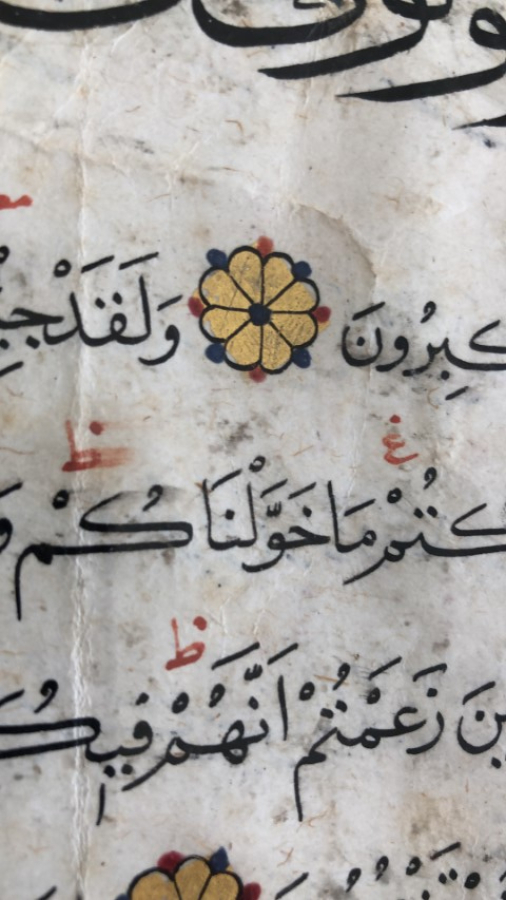 كبِرُونَ وَلَقَدْ جِئْ
غ ظ
كْتُمْ مَا خَوَّلْنَاكُمْ وَ
ظ
ينَ زَعَمْتُمْ اَنَّهُمْ فِيكُ